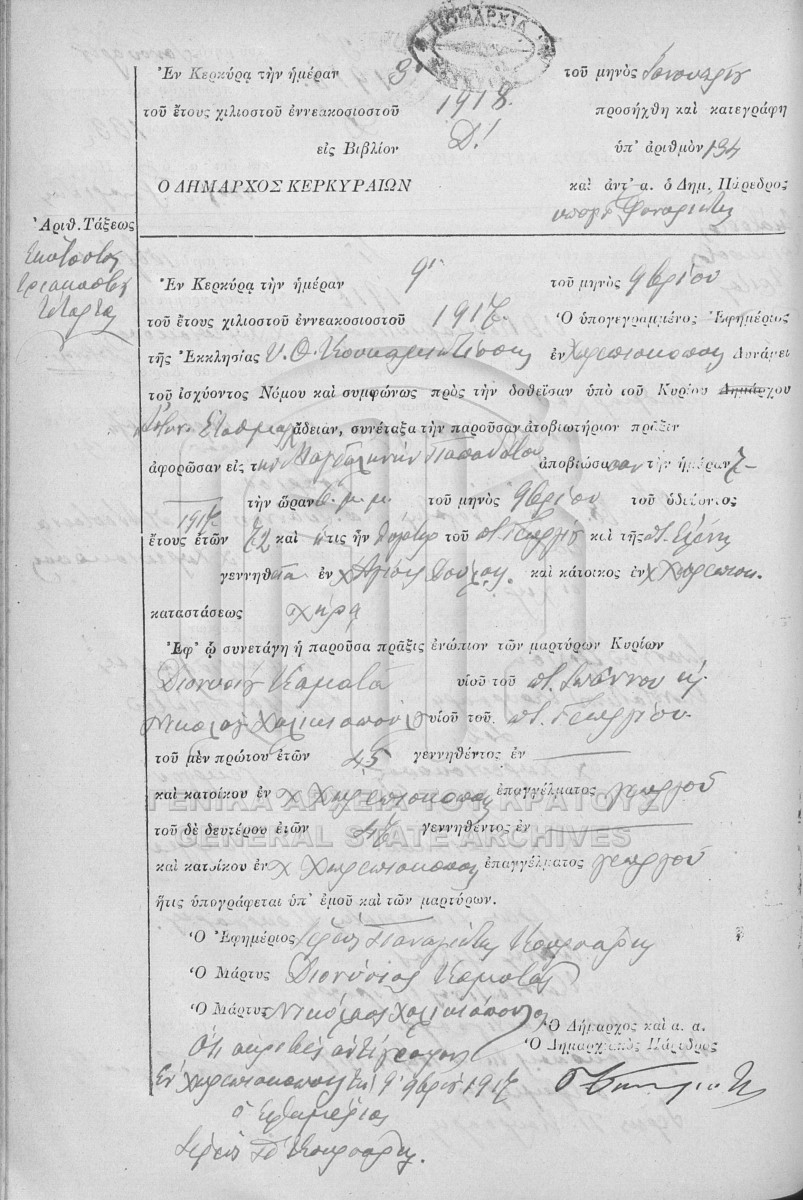 ΔΗΜΑΡΧΙΑ
Ἐν Κερκύρᾳ τὴν ἡμέραν 3 τοῦ μηνὸς Ἰανουαρίου
τοῦ ἔτους χιλιοστοῦ ἐννεακοσιοστοῦ 1918 προσήχθη καὶ κατεγράφη
εἰς Βιβλίον Δ! ὑπ' ἀριθμὸν 134
Ο ΔΗΜΑΡΧΟΣ ΚΕΡΚΥΡΑΙΩΝ καὶ ἀντ'.α. ὁ Δημ. Πάρεδρος
Ἀριθ. Τάξεως
Ἑκατοστὸν
τριακοστὸν
τέταρτον
Ἐν Κερκύρᾳ τὴν ἡμέραν 9 τοῦ μηνὸς 9βρίου
τοῦ ἔτους χιλιοστοῦ ἐννεακοσιοστοῦ 1917 Ὁ ὑπογεγραμμένος Ἐφημέριος
τῆς Ἐκκλησίας Υ. Θ. ἐν Χωρεπισκόποις Δυνάμει
τοῦ ἰσχύοντος Νόμου καὶ συμφώνως πρὸς τὴν δοθεῖσαν ὑπὸ τοῦ Κυρίου Δημάρχου
ἄδειαν, συνέταξα τὴν παροῦσαν ἀποβιωτήριον πρᾶξιν
ἀφορῶσαν εἰς τὴν Μαγδαληνὴν Παπαδάτου ἀποβιώσασαν τὴν ἡμέραν 7
τὴν ὥραν 6. μ.μ. τοῦ μηνὸς 9βρίου τοῦ ὁδεύοντος
1917
ἔτους ἐτῶν 72 καὶ ἥτις ἦν θυγάτηρ τοῦ ποτ. Γεωργίου καὶ τῆς ποτ. Ἑλένης
γεννηθεῖσα ἐν χ Ἁγίους Δούλους. καὶ κάτοικος ἐν χ Χωρεπισκ.
καταστάσεως χήρα
Ἐφ' ᾧ συνετάγη ἡ παροῦσα πρᾶξις ἐνώπιον τῶν μαρτύρων Κυρίων
Διονυσίου Καματᾶ υἱοῦ τοῦ ποτ. Ἰωάννου κ
Νικολάου Χαλικιοπούλου υἱοῦ τοῦ. ποτ. Γεωργίου.
τοῦ μὲν πρώτου ἐτῶν 45 γεννηθέντος ἐν
καὶ κατοίκου ἐν χ Χωρεπισκόπους ἐπαγγέλματος γεωργοῦ
ΓΕΝΙΚΑ ΑΡΧΕΙΑ ΤΟΥ ΚΡΑΤΟΥΣ
τοῦ δὲ δευτέρου ἐτῶν 47 γεννηθέντος ἐν
GENERAL STATE ARCHIVES
καὶ κατοίκου ἐν χ Χωρεπισκόπους ἐπαγγέλματος γεωργοῦ
ἥτις ὑπογράφεται ὑπ' ἐμοῦ καὶ τῶν μαρτύρων.
Ὁ Ἐφημέριος Ἱερεὺς Παναγιώτης
Ὁ Μάρτυς Διονύσιος Καματᾶς
Ὁ Μάρτυς Νικόλαος Χαλικιόπουλος
Ὁ Δήμαρχος καὶ α. α.
Ὁ Δημαρχιακὸς Πάρεδρος
Ὅτι ἀκριβὲς ἀντίγραφον
Ἐν Χωρεπισκόποις τῇ 9 9βρίου 1917
ὁ Ἐφημέριος
Ἱερεὺς Π